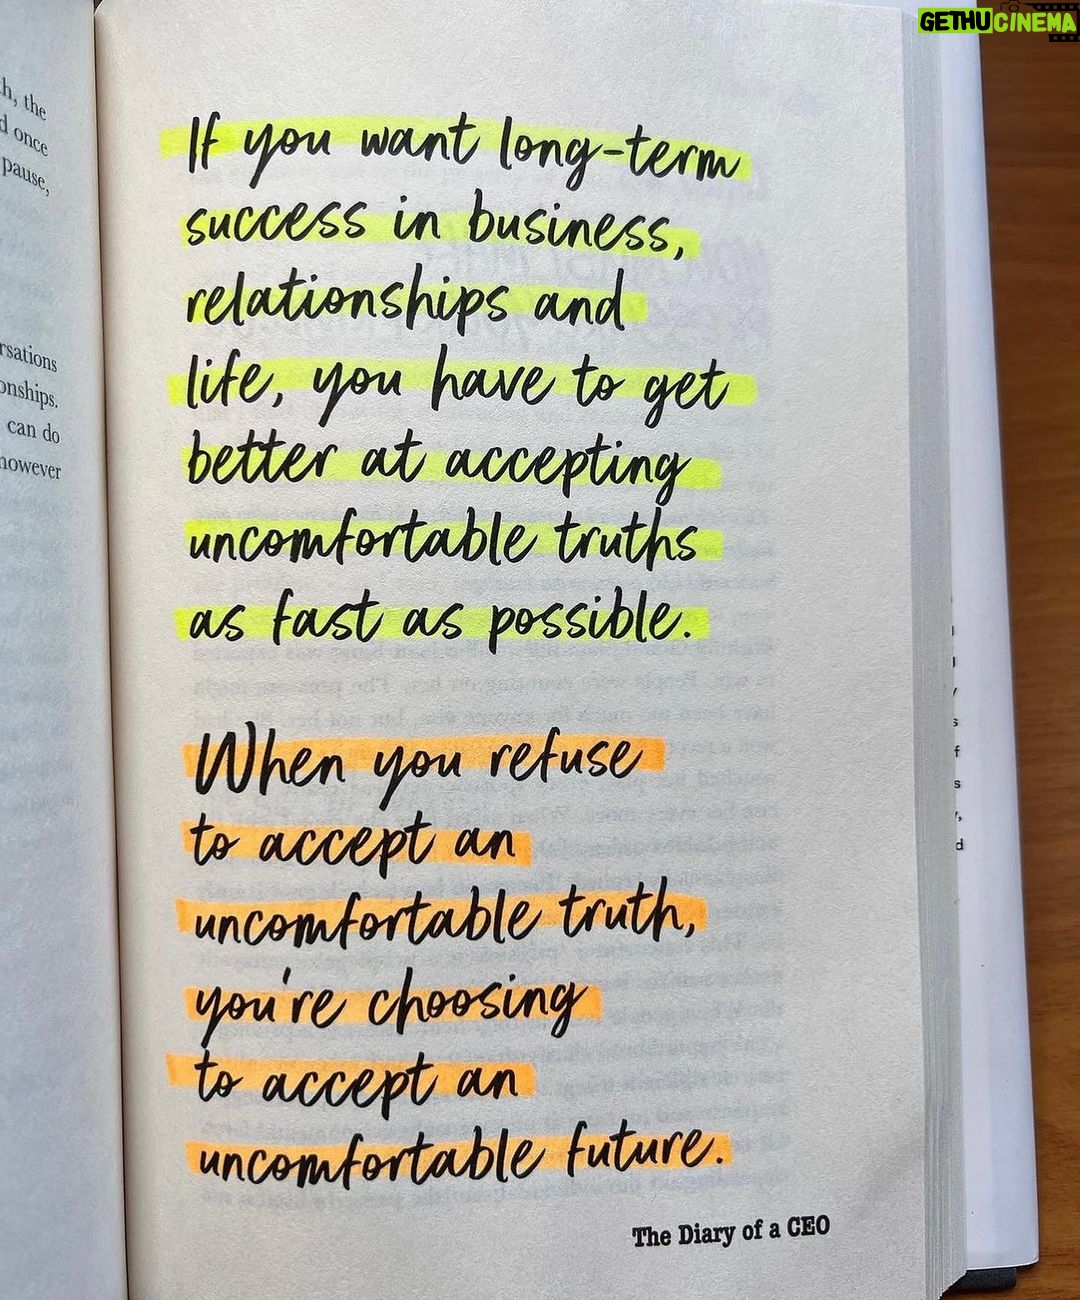 GETHUCINEMA
h, the
d once
pause,
rsations
onships.
can do
however
If you want long-term
success in business,
relationships and
life, you have to get
better at accepting
uncomfortable truths
as fast as possible.
When you refuse
to accept an
uncomfortable truth,
you're choosing
to accept an
uncomfortable future.
The Diary of a CEO